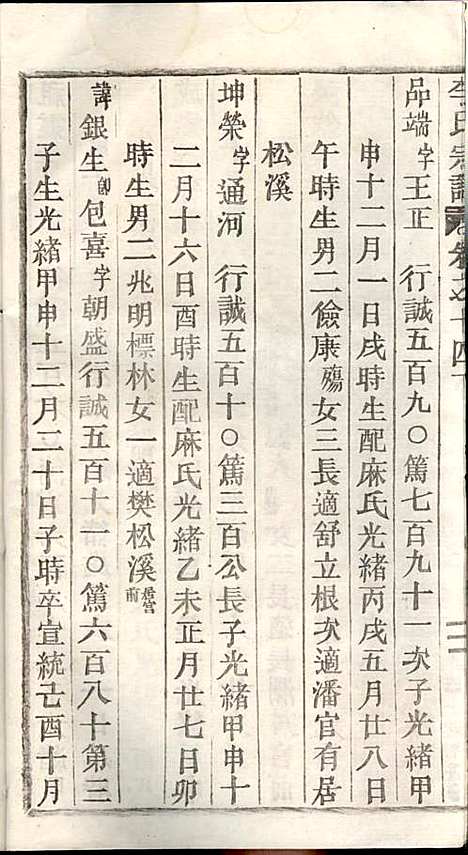 李氏宗譜
品端字王正　行誠五百九〇篤七百九十一次子光緒甲
申十二月一日戌時生配麻氏光緒丙戌五月廿八日
午時生男二儉康殤女三長適舒立根次適潘官有居
松溪
坤榮字通河　行誠五百十〇篤三百公長子光緒甲申十
二月十六日酉時生配麻氏光緒乙未正月廿七日卯
時生男二兆明標林女一適樊松溪
諱銀生卽包喜字朝盛行誠五百十一〇篤六百八十第三
子生光緒甲申十二月二十日子時卒宣統己酉十月